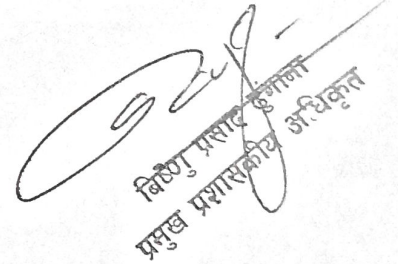 बिष्णु प्रसाद ढुंगाना
प्रमुख प्रशासकीय अधिकृत